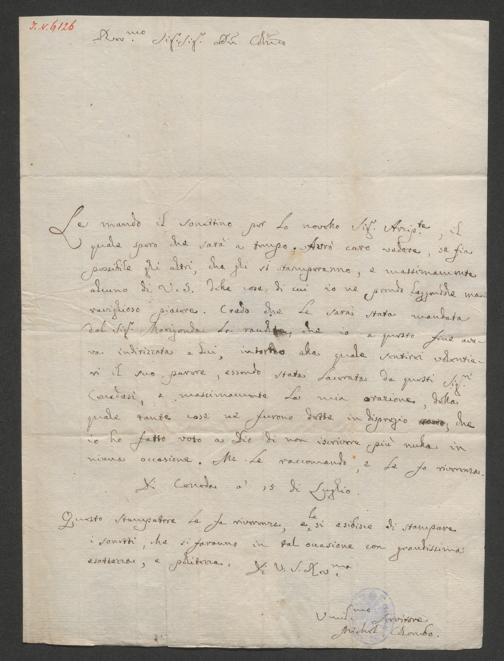 I.N.6126
Rev.mo Sig.r Sig.r
Le mando il sonettino per lo novello Sig.r il
quale spero che sarà a tempo. Avrò caro vedere, se fia
possibile gli altri, che gli si stamperanno, e massimamente
alcuno di V.S. delle cose, di cui io ne prendo leggendole mar
raviglioso piacere. Credo che le sarà stata mandata
dal Sig.r la che io a questo fine ave-
va indirizzata a Lui, intorno alla quale sentirei volentie-
ri il suo parere, essendo stata lacerata da questi Sig.ri
Cenedesi, e massimamente la mia orazione, della
quale tante cose ne furono dette in dispregio che
io ho fatto voto a Dio di non iscrivere più nulla in
niuna occasione. Me Le raccomando, e Le fo riverenza.
Di Ceneda a' 15 di Luglio.
Questo stampatore Le fa riverenza, e le si esibisce di stampare
i sonetti, che si faranno in tal occasione con grandissima
esattezza, e politezza. Di V.S. Rev.ma
Umil.mo Servitore
Michel Colombo.